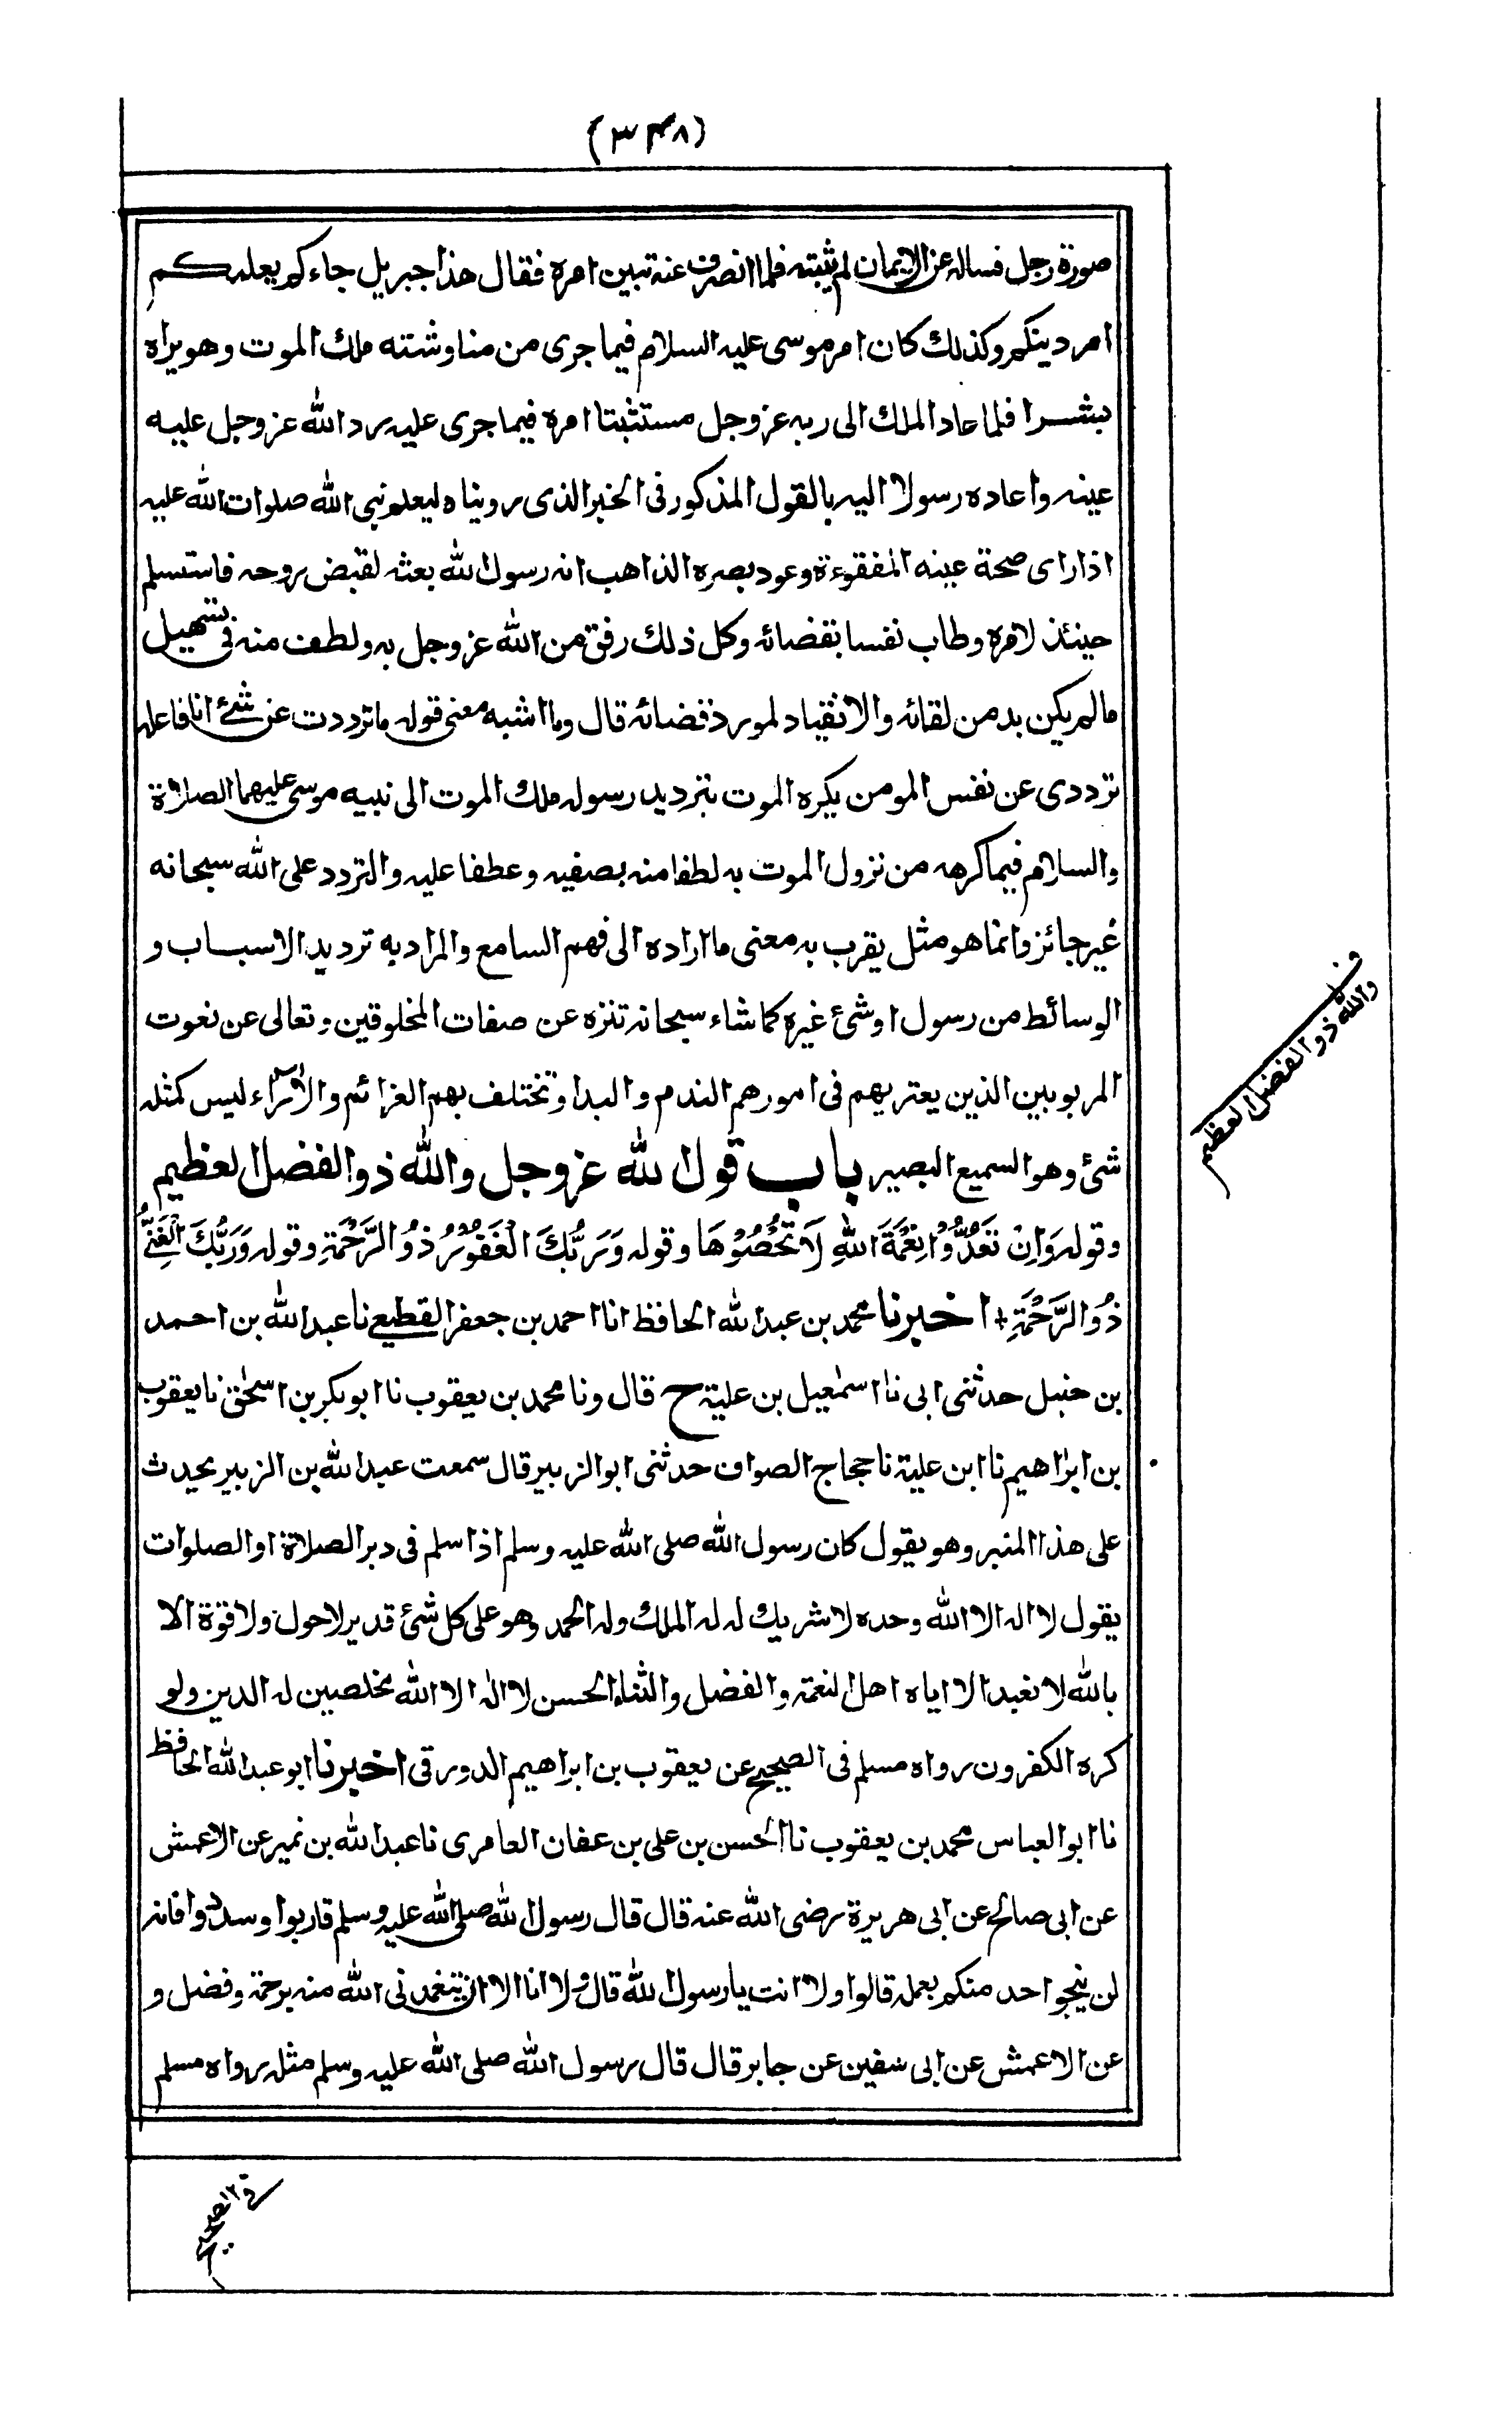 (٣٤٨)
صورة رجل فساله عن الايمان لم يثبته فلما انصرف عنه تبين امره فقال هذا جبريل جاءكم يعلمكم
امر دينكم وكذلك كان امر موسى عليه السلام فيما جرى من مناوشته ملك الموت وهو يراه
بشرا فلما عاد الملك الى ربه عز وجل مستثبتا امره فيما جرى عليه رد الله عز وجل عليه
عينه واعاده رسولا اليه بالقول المذكور فى الخبر الذى رويناه ليعلم نبى الله صلوات الله عليه
اذا راى صحة عينه المفقوءة وعود بصره الذاهب انه رسول الله بعثه لقبض روحه فاستسلم
حينئذ لامره وطاب نفسا بقضائه وكل ذلك رفق من الله عز وجل به ولطف منه فى تسهيل
مالم يكن بد من لقائه والانقياد لمورد قضائه قال وما اشبه معنى قوله ما ترددت عن شئ انا فاعله
ترددى عن نفس المومن يكره الموت بترديد رسوله ملك الموت الى نبيه موسى عليهما الصلاة
والسلام فيما كرهه من نزول الموت به لطفا منه بصفيه وعطفا عليه والتردد على الله سبحانه
غير جائز وانما هو مثل يقرب به معنى ما اراده الى فهم السامع والمراد به ترديد الاسباب و
الوسائط من رسول او شئ غيره كما شاء سبحانه تنزه عن صفات المخلوقين وتعالى عن نعوت
المربوبين الذين يعتريهم فى امورهم الندم والبدا وتختلف بهم العزائم والآراء ليس كمثله
شئ وهو السميع البصير باب قول الله عز وجل والله ذو الفضل العظيم
وقوله وَاِنْ تَعُدُّوْا نِعْمَةَ اللهِ لَا تُحْصُوْهَا وقوله وَرَبُّكَ الْغَفُوْرُ ذُو الرَّحْمَةِ وقوله وَرَبُّكَ الْغَنِيُّ
ذُو الرَّحْمَةِ + اخبرنا محمد بن عبدالله الحافظ انا احمد بن جعفر القطيعى نا عبدالله بن احمد
بن حنبل حدثنى ابى نا اسمٰعيل بن علية ح قال ونا محمد بن يعقوب نا ابو بكر بن اسحٰق نا يعقوب
بن ابراهيم نا ابن علية نا حجاج الصواف حدثنى ابو الزبير قال سمعت عبد الله بن الزبير يحدث
على هذا المنبر وهو يقول كان رسول الله صلى الله عليه وسلم اذا سلم فى دبر الصلاة او الصلوات
يقول لا اله الا الله وحده لا شريك له له الملك وله الحمد وهو على كل شئ قدير لا حول ولا قوة الا
بالله لا نعبد الا اياه اهل النعمة والفضل والثناء الحسن لا اله الا الله مخلصين له الدين ولو
كره الكفرون رواه مسلم فى الصحيح عن يعقوب بن ابراهيم الدورقى اخبرنا ابو عبدالله الحافظ
نا ابو العباس محمد بن يعقوب نا الحسن بن على بن عفان العامرى نا عبدالله بن نمير عن الاعمش
عن ابى صالح عن ابى هريرة رضى الله عنه قال قال رسول الله صلى الله عليه وسلم قاربوا وسددوا فانه
لن ينجو احد منكم بعمله قالوا ولا انت يا رسول الله قال ولا انا الا ان يتغمدنى الله منه برحمة وفضل و
عن الاعمش عن ابى سفين عن جابر قال قال رسول الله صلى الله عليه وسلم مثله رواه مسلم
والله ذو الفضل العظيم